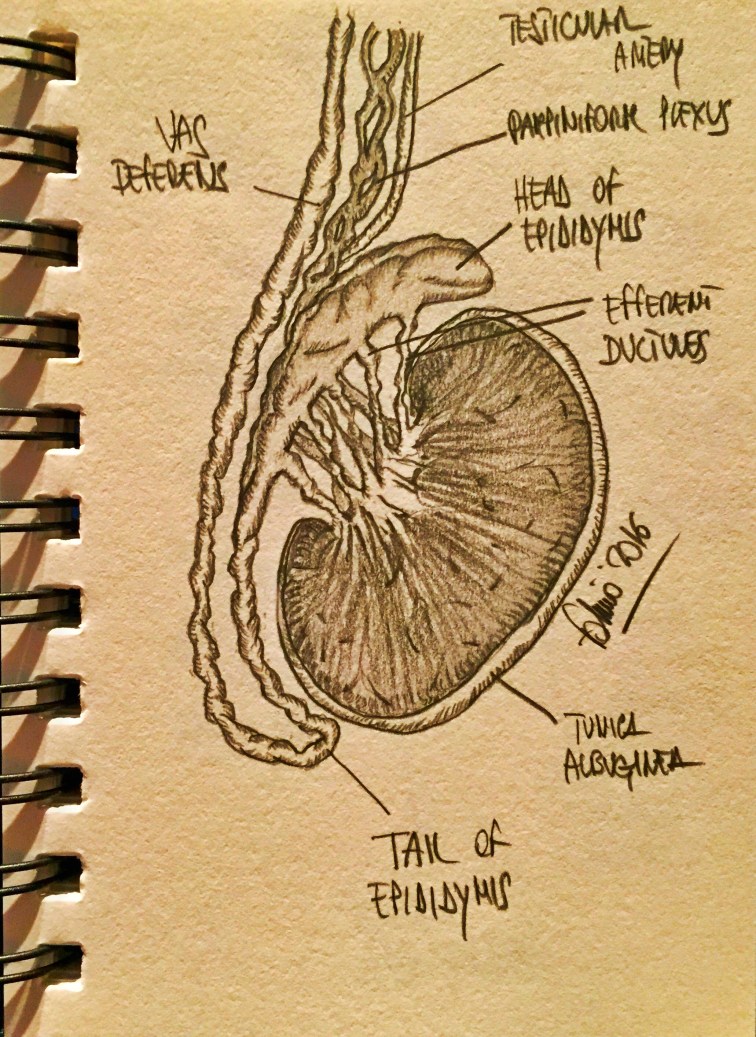 TESTICULAR
ARTERY
VAS
DEFERENS
PAMPINIFORM PLEXUS
HEAD OF
EPIDIDYMIS
EFFERENT
DUCTULES
2016
TUNICA
ALBUGINEA
TAIL OF
EPIDIDYMIS